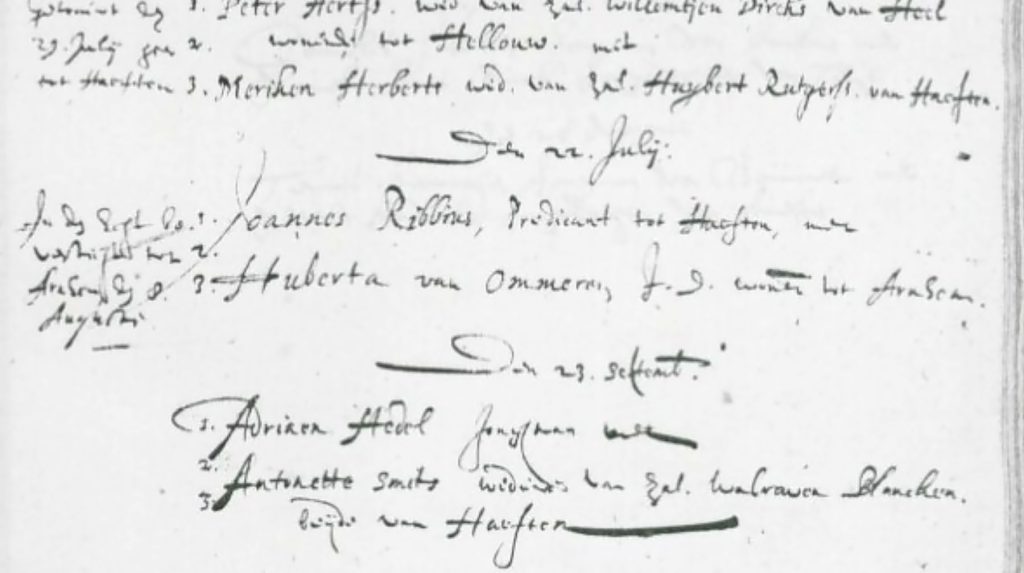 1. Peter Hertss. wed. van zal. Willemtjen Dircks van Heel
29. Julij 2. wonende tot Hellouw. met
tot Haeften 3. Meriken Herberts wed. van zal. Huybert Rutgerss. van Haeften.
Den 22. Julij.
1. Joannes Ribbius, Predicant tot Haeften, met
2.
Arnhem 8. 3. Huberta van Ommeren J. D. wonen tot Arnhem.
Augusti
Den 23. Septemb.
1. Adriaen Hedel Jongman met
2. Antonette Smits weduwe van zal. Walraven Blancken.
3. beijde van Haeften